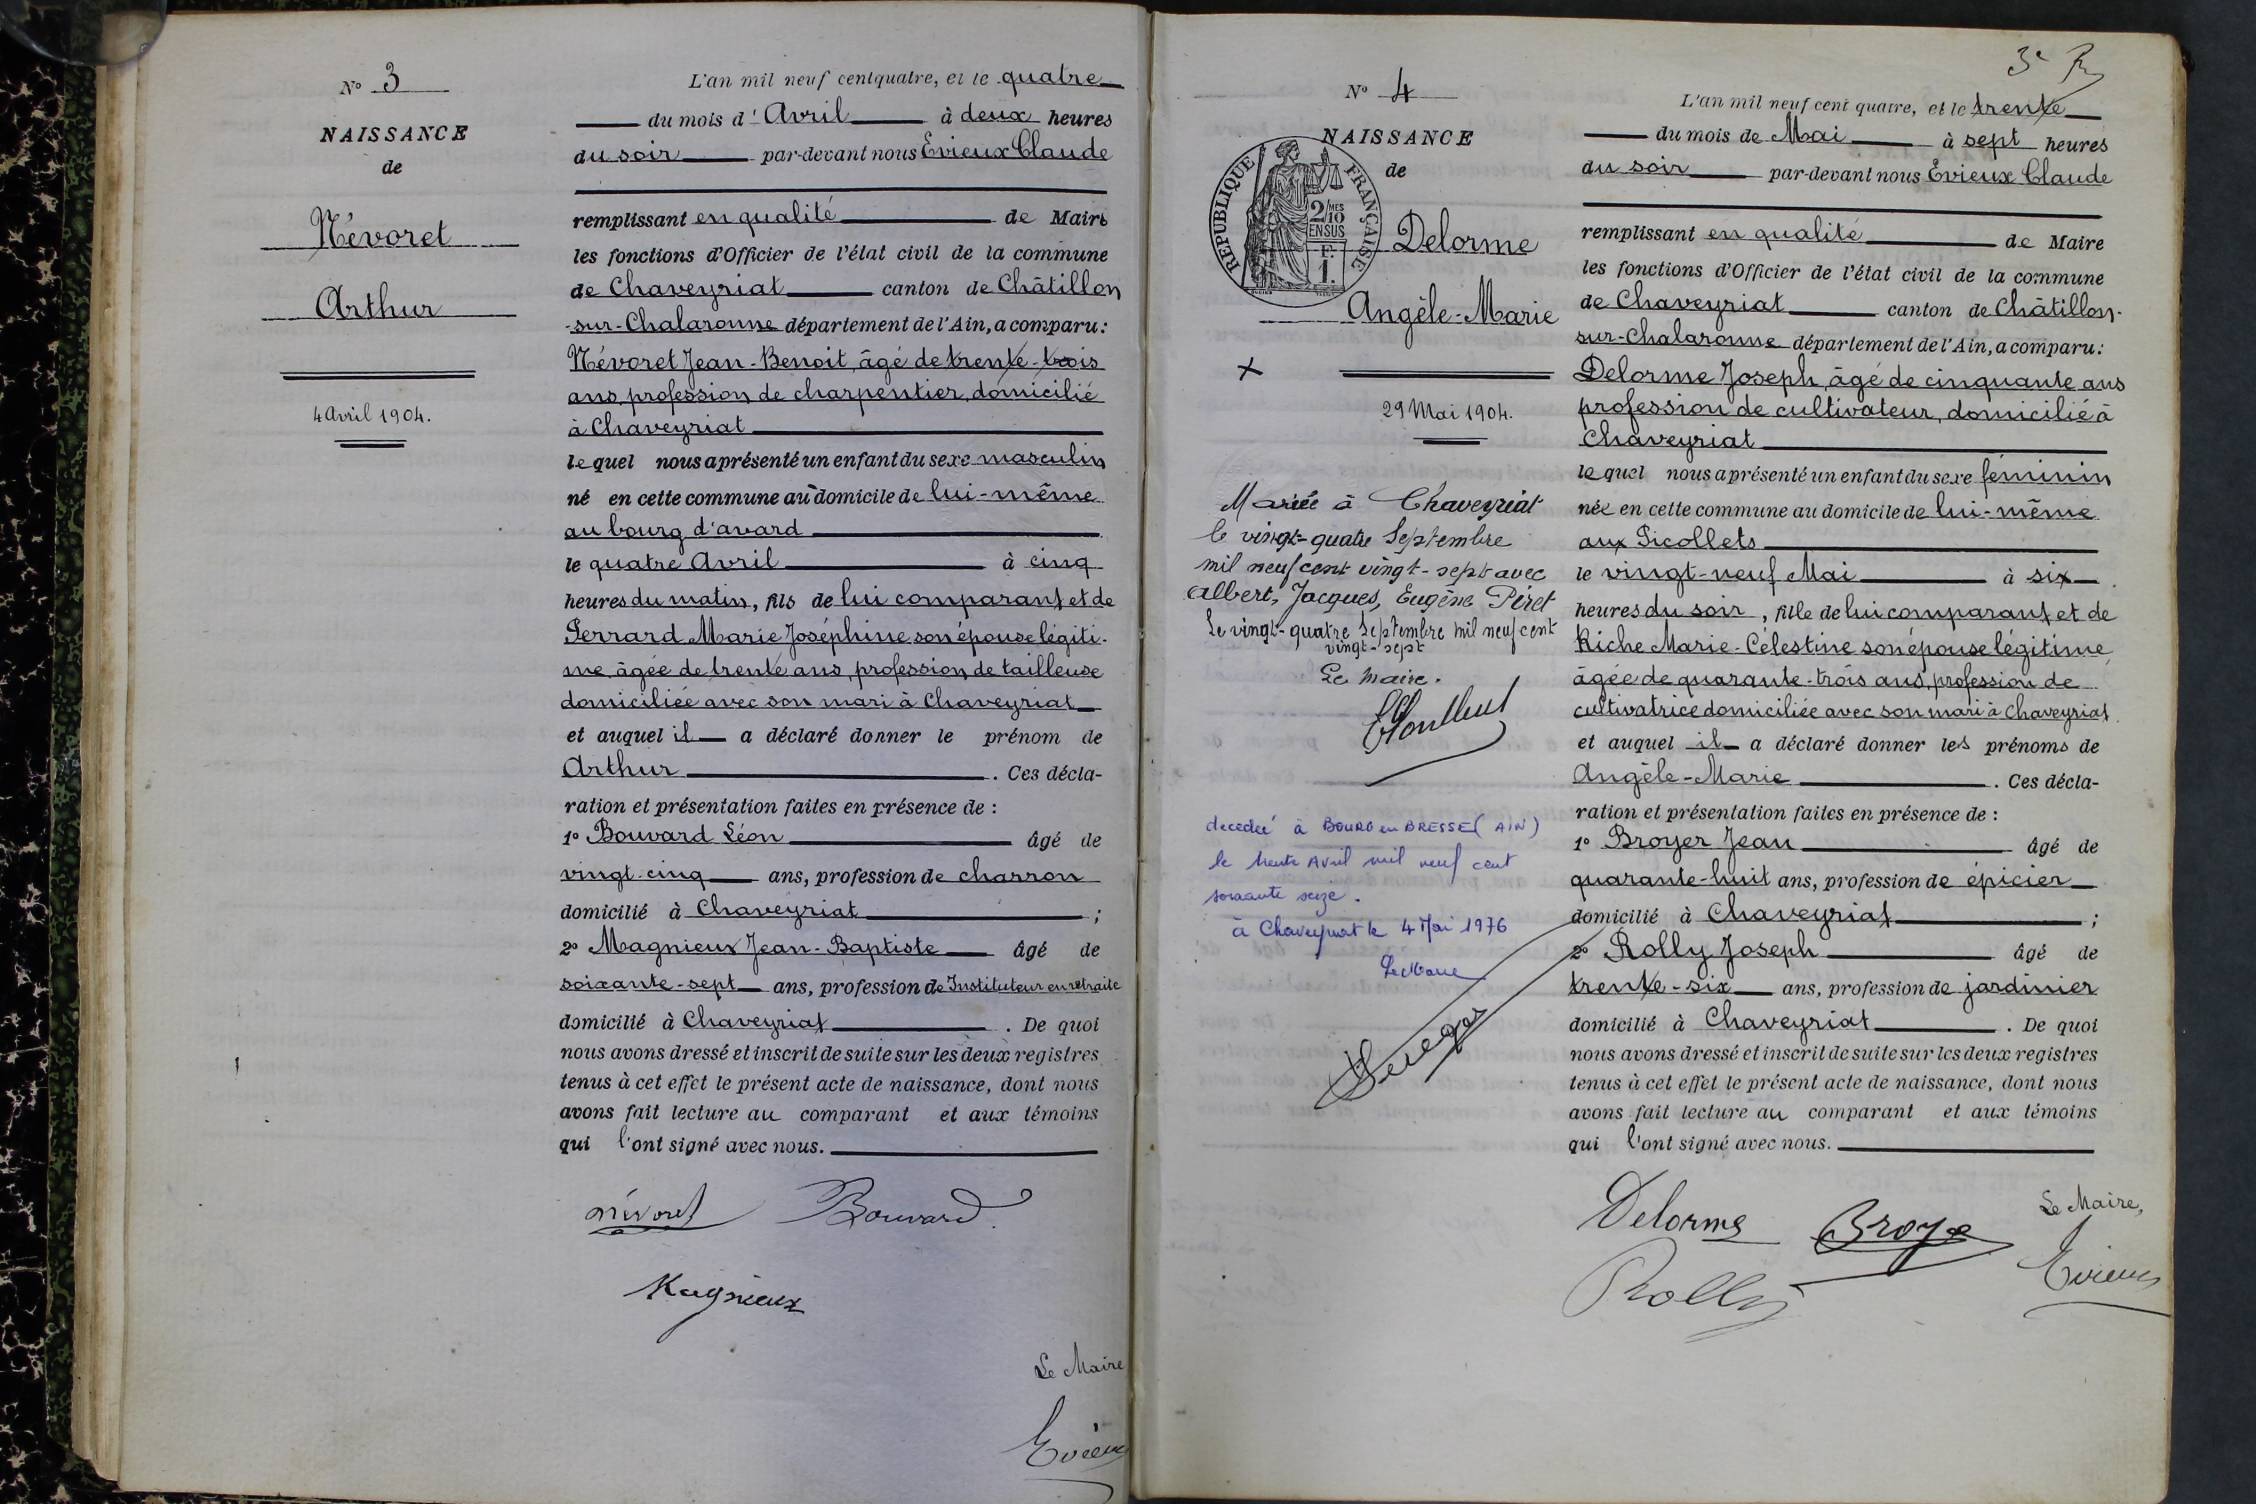 N° 3
NAISSANCE
de
Névoret
Arthur
4 Avril 1904.
L'an mil neuf cent quatre, et le quatre
du mois d'Avril à deux heures
du soir par-devant nous Evieux Claude
remplissant en qualité de Maire
les fonctions d'Officier de l'état civil de la commune
de Chaveyriat canton de Châtillon
-sur-Chalaronne département de l'Ain, a comparu:
Névoret Jean-Benoit, âgé de trente-trois
ans, profession de charpentier, domicilié
à Chaveyriat
lequel nous a présenté un enfant du sexe masculin
né en cette commune au domicile de lui-même
au bourg d'avard
le quatre Avril à cinq
heures du matin, fils de lui comparant et de
Perrard Marie Joséphine son épouse légiti-
me âgée de trente ans, profession de tailleuse
domiciliée avec son mari à Chaveyriat
et auquel il a déclaré donner le prénom de
Arthur. Ces décla-
ration et présentation faites en présence de :
1° Bouvard Léon âgé de
vingt-cinq ans, profession de charron
domicilié à Chaveyriat ;
2° Magnieux Jean-Baptiste âgé de
soixante-sept ans, profession de Instituteur en retraite
domicilié à Chaveyriat. De quoi
nous avons dressé et inscrit de suite sur les deux registres
tenus à cet effet le présent acte de naissance, dont nous
avons fait lecture au comparant et aux témoins
qui l'ont signé avec nous.
Névoret Bouvard
Magnieux
Le Maire
Evieux
3e
N° 4
NAISSANCE
de
REPUBLIQUE FRANÇAISE
2/10 MES
EN SUS
F.
1.
Delorme
Angèle-Marie
29 Mai 1904.
Mariée à Chaveyriat
le vingt-quatre Septembre
mil neuf cent vingt-sept avec
Albert, Jacques, Eugène Péret
Le vingt-quatre Septembre mil neuf cent
vingt-sept
Le Maire.
décédée à BOURG en BRESSE (AIN)
le trente Avril mil neuf cent
soixante seize.
à Chaveyriat le 4 Mai 1976
Le Maire
L'an mil neuf cent quatre, et le trente
du mois de Mai à sept heures
du soir par-devant nous Evieux Claude
remplissant en qualité de Maire
les fonctions d'Officier de l'état civil de la commune
de Chaveyriat canton de Châtillon-
sur-Chalaronne département de l'Ain, a comparu:
Delorme Joseph, âgé de cinquante ans
profession de cultivateur, domicilié à
Chaveyriat
lequel nous a présenté un enfant du sexe féminin
née en cette commune au domicile de lui-même
aux Picollets
le vingt-neuf Mai à six
heures du soir, fille de lui comparant et de
Riche Marie-Célestine son épouse légitime,
âgée de quarante-trois ans, profession de
cultivatrice domiciliée avec son mari à Chaveyriat
et auquel il a déclaré donner les prénoms de
Angèle-Marie. Ces décla-
ration et présentation faites en présence de :
1° Broyer Jean âgé de
quarante-huit ans, profession de épicier
domicilié à Chaveyriat ;
2° Rolly Joseph âgé de
trente-six ans, profession de jardinier
domicilié à Chaveyriat. De quoi
nous avons dressé et inscrit de suite sur les deux registres
tenus à cet effet le présent acte de naissance, dont nous
avons fait lecture au comparant et aux témoins
qui l'ont signé avec nous.
Delorme Broye
Rolly
Le Maire,
Evieux